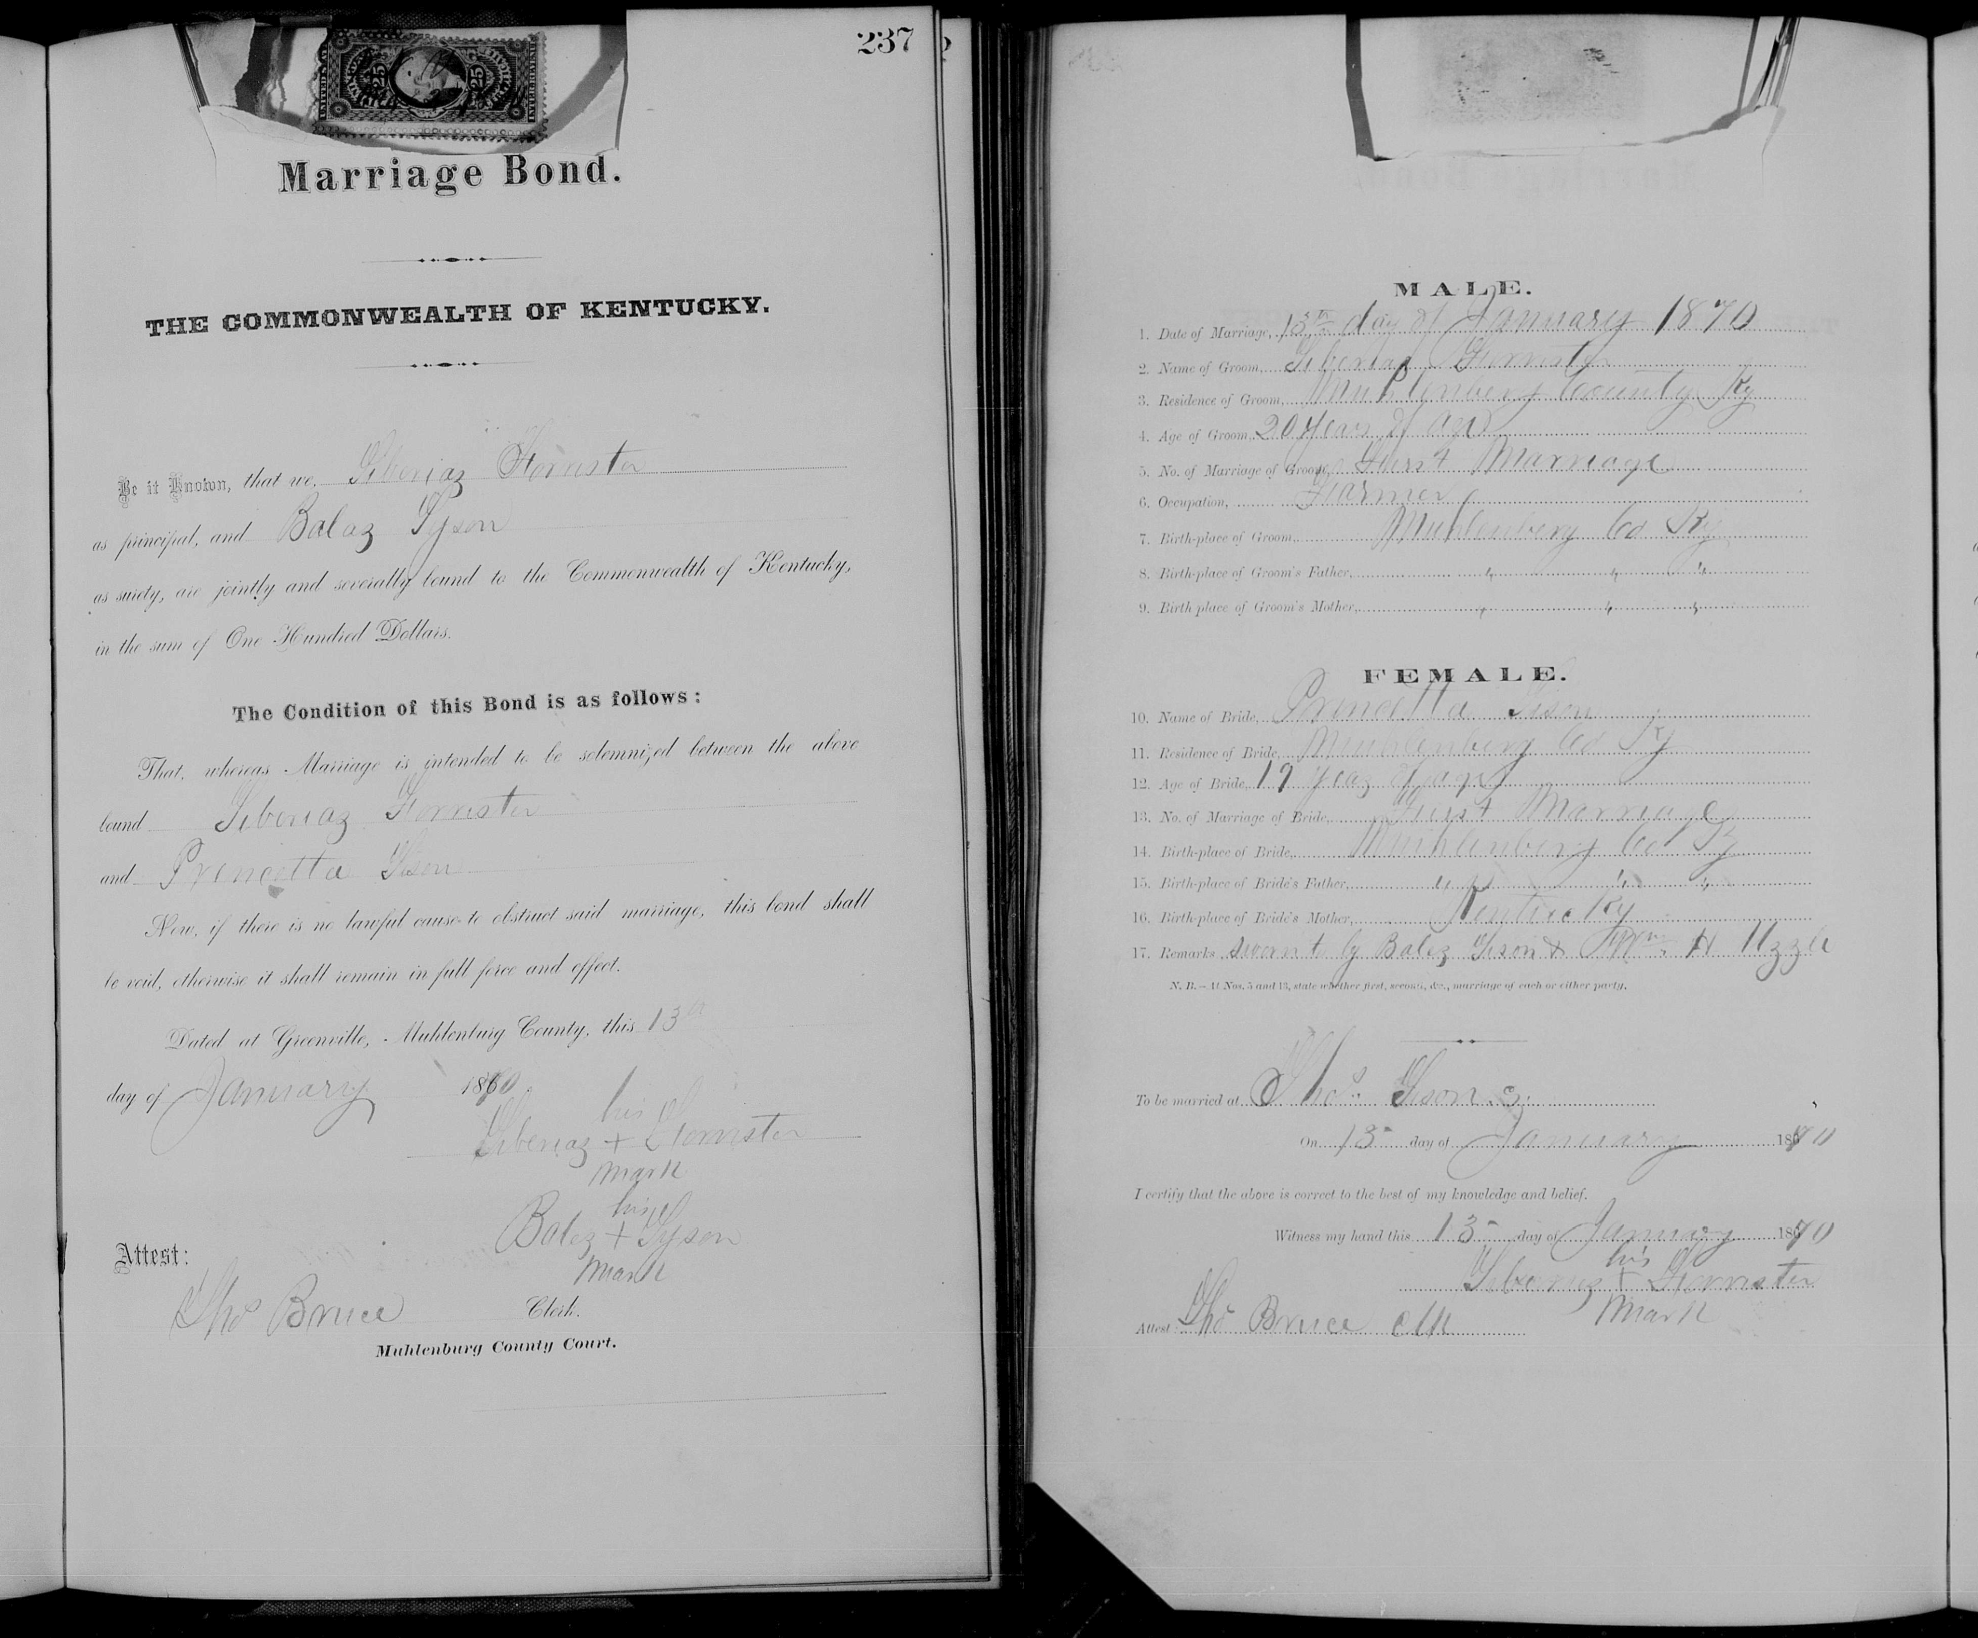 237
25 25
Marriage Bond.
THE COMMONWEALTH OF KENTUCKY.
Be it Known, that we, Siberiaz Forrister
as principal, and Balaz Tyson
as surety, are jointly and severally bound to the Commonwealth of Kentucky,
in the sum of One Hundred Dollars.
The Condition of this Bond is as follows:
That, whereas Marriage is intended to be solemnized between the above
bound Siberiaz Forrister
and Princetta Tison
Now, if there is no lawful cause to obstruct said marriage, this bond shall
be void, otherwise it shall remain in full force and effect.
Dated at Greenville, Muhlenburg County, this 13th
day of January 1870
his
Siberiaz + Forrister
mark
his
Balez + Tyson
mark
Attest:
Thos Bruce Clerk.
Muhlenburg County Court.
MALE.
1. Date of Marriage, 13th day of January 1870
2. Name of Groom, Siberiaz Forrister
3. Residence of Groom, Muhlenberg County Ky
4. Age of Groom, 20 years of age
5. No. of Marriage of Groom, First Marriage
6. Occupation, Farmer
7. Birth-place of Groom, Muhlenberg Co Ky
8. Birth-place of Groom's Father, " " "
9. Birth place of Groom's Mother, " " "
FEMALE.
10. Name of Bride, Princetta Tison
11. Residence of Bride, Muhlenberg Co Ky
12. Age of Bride, 19 yeaz of age
13. No. of Marriage of Bride, First Marriage
14. Birth-place of Bride, Muhlenberg Co Ky
15. Birth-place of Bride's Father, " " "
16. Birth-place of Bride's Mother, Kentucky
17. Remarks Sworn t by Balez Tison & Wm H Uzzle
N. B.—At Nos. 5 and 13, state whether first, second, &c., marriage of each or either party.
To be married at Thos. Tisons
On 13 day of January 1870
I certify that the above is correct to the best of my knowledge and belief.
Witness my hand this 13 day of January 1870
his
Siberiaz + Forrister
mark
Attest Thos Bruce clk